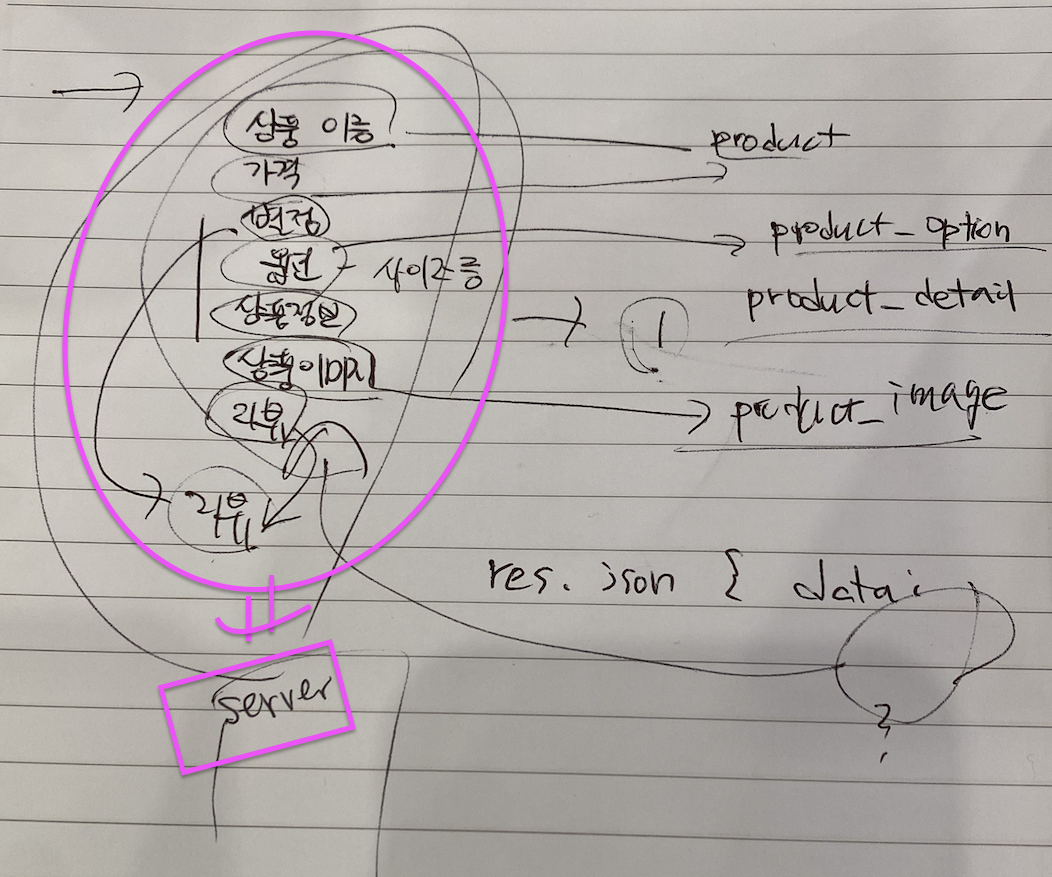 상품 이름
product
가격
별점
product_option
옵션 - 사이즈 등
product_detail
상품정보
1
상품이미지
product_image
리뷰
리뷰
res. json { data:
}
server